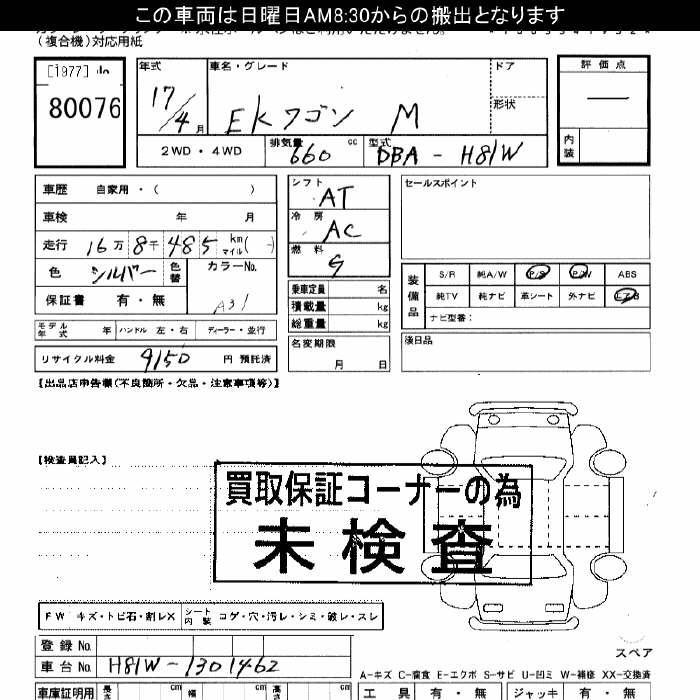 この車両は日曜日AM8:30からの搬出となります
(複合機)対応用紙
[1977]
80076
年式
17/4 月
車名・グレード
EKワゴン M
ドア
形状
評価点
—
内装
2WD・4WD
排気量
660 cc
型式
DBA - H81W
車歴 自家用・( )
車検 年 月
走行 16万8千485 km マイル( )
色 シルバー 色替
カラーNo.
A31
保証書 有・無
モデル年式 年 ハンドル 左・右 ディーラー・並行
リサイクル料金 9150 円 預託済
シフト
AT
冷房
AC
燃料
G
乗車定員 名
積載量 kg
総重量 kg
名変期限
月 日
セールスポイント
装備品
S/R 純A/W P/S P/W ABS
純TV 純ナビ 革シート 外ナビ エアB
ナビ型番:
後日品
【出品店申告欄(不良箇所・欠品・注意事項等)】
【検査員記入】
買取保証コーナーの為
未検査
FW キズ・トビ石・割レX シート内装 コゲ・穴・汚レ・シミ・破レ・スレ
スペア
登録No.
車台No. H81W-1301462
A-キズ C-腐食 E-エクボ S-サビ U-凹ミ W-補修 XX-交換済
車庫証明用 長さ cm 幅 cm 高さ cm
工具 有・無 ジャッキ 有・無